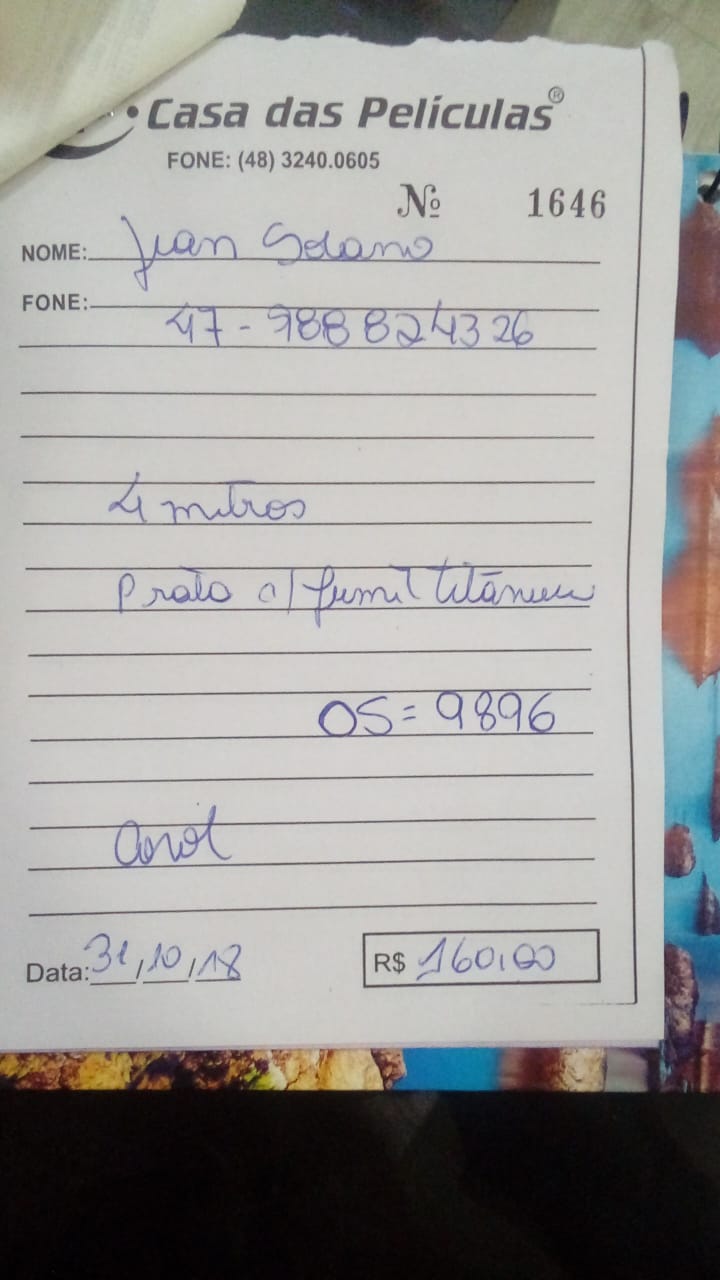 Casa das Películas®
FONE: (48) 3240.0605
Nº 1646
NOME: Jean Solano
FONE:
47-988824326
4 metros
Prata c/ fumê titânium
OS = 9896
Carol
Data: 31/10/18 R$ 160,00